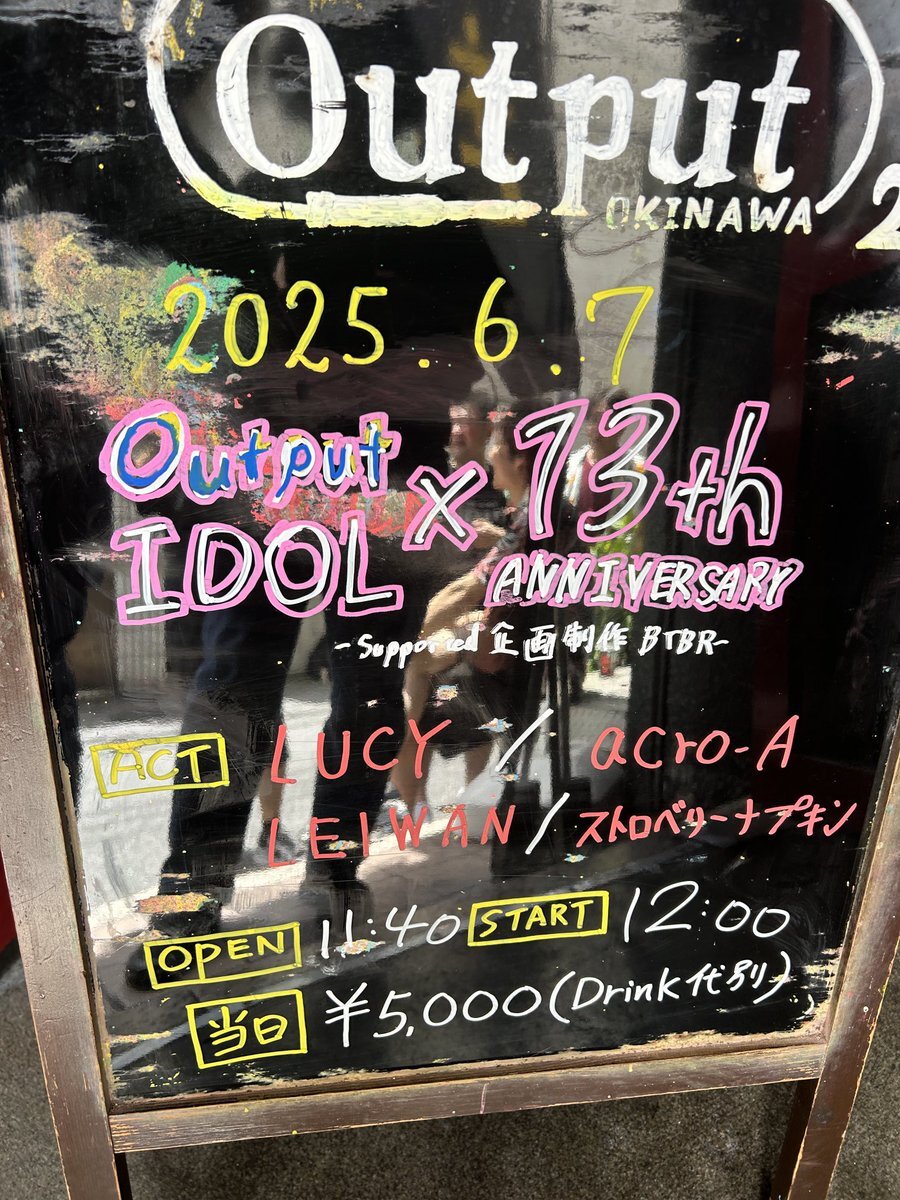 Output
OKINAWA 2
2025.6.7
Output
IDOL × 13th
ANNIVERSARY
-Supported 企画制作 BTBR-
ACT LUCY / acro-A
LEIWAN / ストロベリーナプキン
OPEN 11:40 START 12:00
当日 ¥5,000(Drink代別)